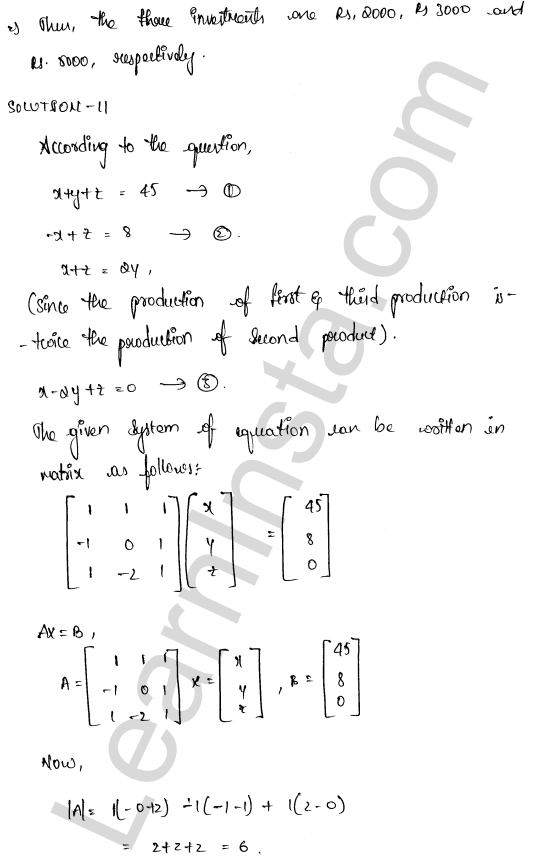 ⇒ Thus, the three investments are Rs, 2000, Rs 3000 and
Rs. 5000, respectively.
SOLUTION-11
According to the question,
x+y+z = 45 → ①
-x+z = 8 → ②.
x+z = 2y,
(Since the production of first & third production is-
-twice the production of second product).
x-2y+z=0 → ③.
The given system of equation can be written in
matrix as follows:
[1 1 1; -1 0 1; 1 -2 1] [x; y; z] = [45; 8; 0]
AX = B,
A = [1 1 1; -1 0 1; 1 -2 1] X = [x; y; z], B = [45; 8; 0]
Now,
|A| = 1(-0+2) -1(-1-1) + 1(2-0)
= 2+2+2 = 6.
LearnInsta.com